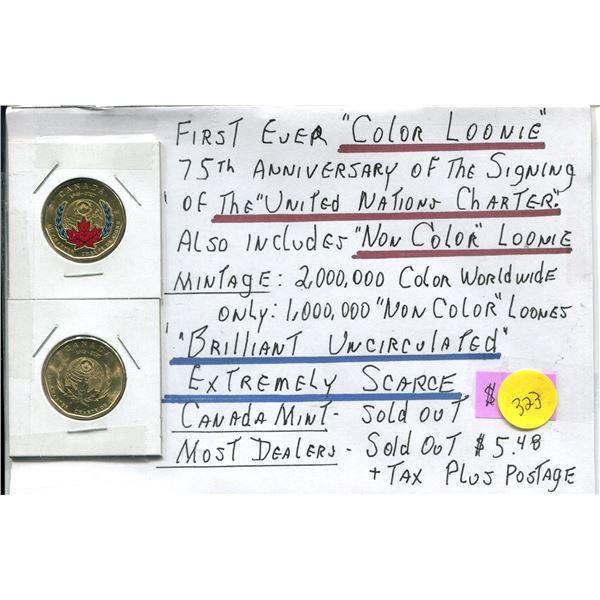 FIRST EVER "COLOR LOONIE"
75TH ANNIVERSARY OF THE SIGNING
OF THE "UNITED NATIONS CHARTER".
ALSO INCLUDES "NON COLOR" LOONIE
MINTAGE: 2,000,000 COLOR WORLDWIDE
ONLY: 1,000,000 "NON COLOR" LOONES
"BRILLIANT UNCIRCULATED"
EXTREMELY SCARCE $ 323
CANADA MINT - SOLD OUT
MOST DEALERS - SOLD OUT $5.48
+ TAX PLUS POSTAGE
CANADA
CANADA